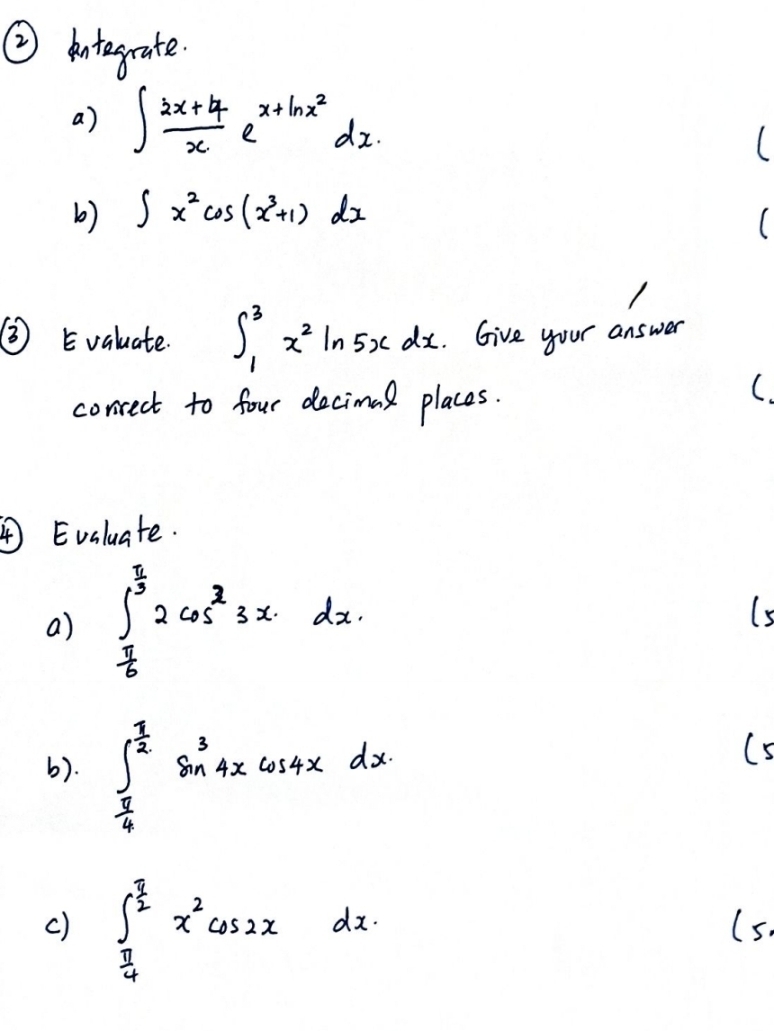 ② Integrate.
a) ∫ (2x+4)/x e^(x+ln x²) dx.
b) ∫ x² cos (x³+1) dx
③ Evaluate. ∫₁³ x² ln 5x dx. Give your answer
correct to four decimal places.
④ Evaluate.
a) ∫_(π/6)^(π/3) 2 cos² 3x. dx.
(5
b). ∫_(π/4)^(π/2) sin³ 4x cos 4x dx.
(5
c) ∫_(π/4)^(π/2) x² cos 2x dx.
(5